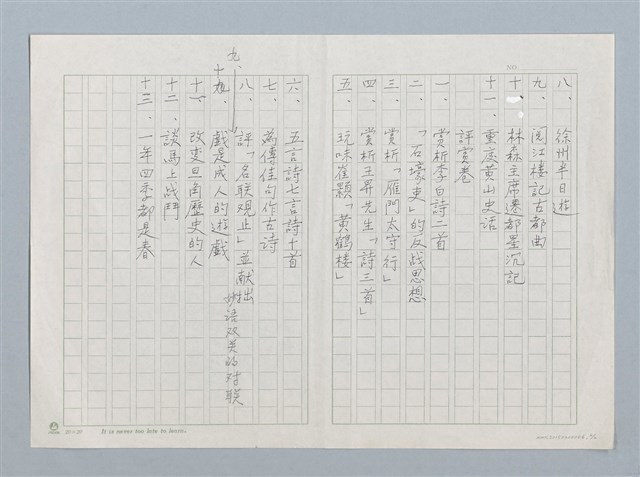 八、徐州半日遊
九、阅江楼記古都曲
十、林森主席遷都星沉記
十一、重慶黄山史话
評賞卷
一、賞析李白詩二首
二、「石豪吏」的反战思想
三、賞析「雁門太守行」
四、賞析王昇先生「詩三首」
五、玩味崔顥「黄鶴楼」
六、五言詩七言詩十首
七、為傳佳句作古詩
八、評「名联观止」並献拙
九、妙语双关的对联
十、戲是成人的遊戲
十一、改变旦角歷史的人
十二、談馬上战鬥
十三、一年四季都是春
It is never too late to learn.